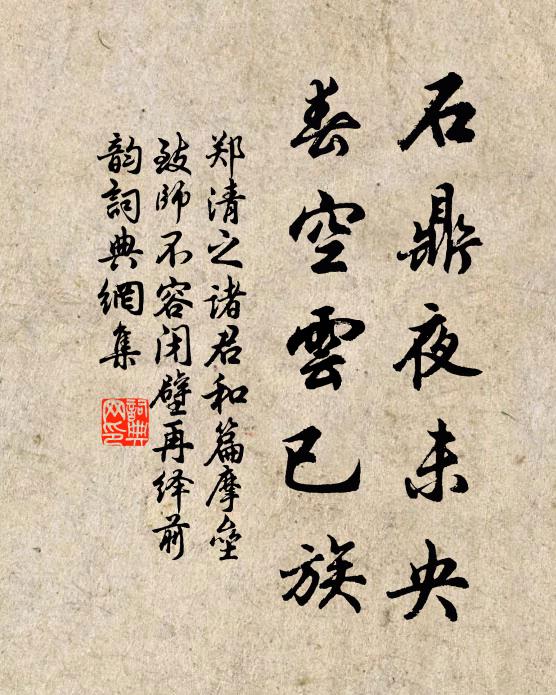 石鼎夜未央
春空雲已族
郑清之诸君和篇摩垒
致师不容闭壁再绎前
韵詞典網集
詞典
网印